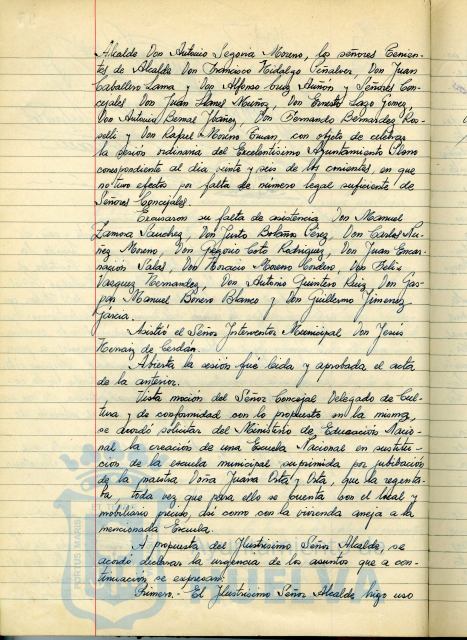 Alcalde Don Antonio Segovia Moreno, los señores Tenien-
tes de Alcalde Don Francisco Hidalgo Peñalver, Don Juan
Caballero Lama y Don Alfonso Cruz Auñón y Señores Con-
cejales Don Juan Llanes Muñoz, Don Ernesto Lazo Gómez,
Don Antonio Bernal Ibañez, Don Fernando Bernardez Ros-
selli y Don Rafael Moreno, con objeto de celebrar
la sesión ordinaria del Excelentísimo Ayuntamiento Pleno
correspondiente al dia veinte y seis de los corrientes, en que
no tuvo efectos por falta de número legal suficiente de
Señores Concejales.
Excusaron su falta de asistencia Don Manuel
Zamora Sanchez, Don Justo Bolaños Pérez, Don Carlos Nu-
ñez Moreno, Don Gregorio Coto Rodriguez, Don Juan Encar-
nación Salas, Don Horacio Moreno Cordero, Don Felix
Vazquez Hernandez, Don Antonio Quintero Ruiz, Don Gas-
par Manuel Borrero Blanco y Don Guillermo Jimenez
García.
Asistió el Señor Interventor Municipal Don Jesús
Hernaiz de Cerdán.
Abierta la sesión fué leida y aprobada el acta
de la anterior.
Vista moción del Señor Concejal Delegado de Cul-
tura y de conformidad con lo propuesto en la misma,
se acordó solicitar del Ministerio de Educacion Nacio-
nal la creación de una Escuela Nacional en sustitu-
cion de la escuela municipal suprimida por jubilación
de la maestra Doña Juana Orta y Orta, que la regenta-
ba, toda vez que para ello se cuenta con el local y
mobiliario preciso, asi como con la vivienda aneja a la
mencionada Escuela.
A propuesta del Ilustrísimo Señor Alcalde, se
acordó declarar la urgencia de los asuntos que a con-
tinuación se expresan:
Primero.- El Ilustrisimo Señor Alcalde hizo uso
PORTUS MARIS
HUELVA